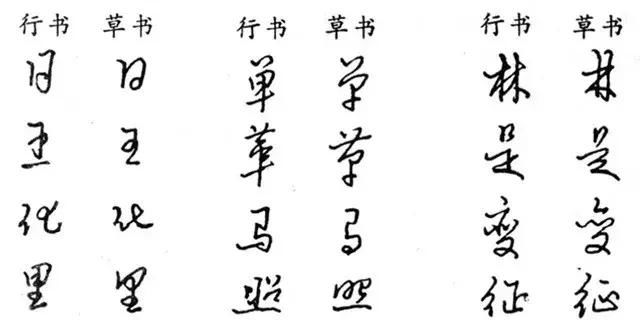 行书 草书 行书 草书 行书 草书
月 日 单 单 林 林
王 王 草 是 是
化 化 马 马 变 变
里 里 照 照 征 征